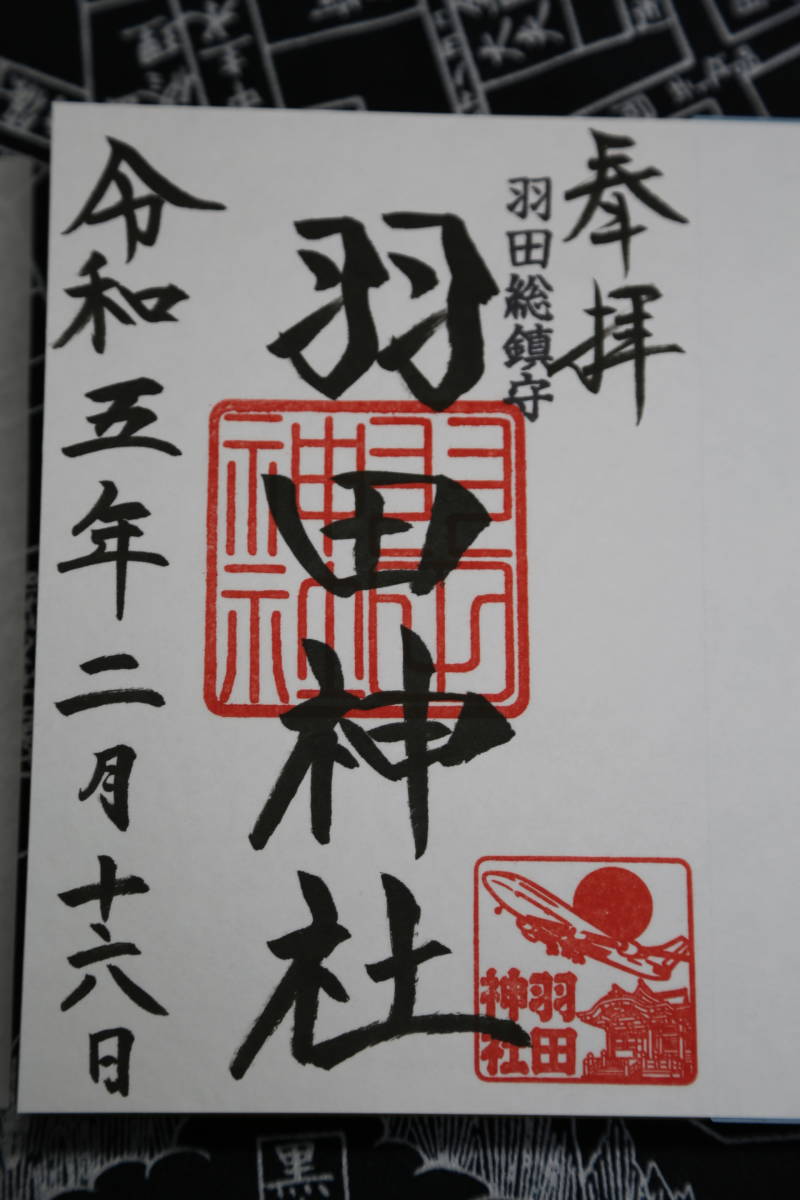 奉拝
羽田総鎮守
羽田神社
羽田
神社
羽田
神社
令和五年二月十六日
黒